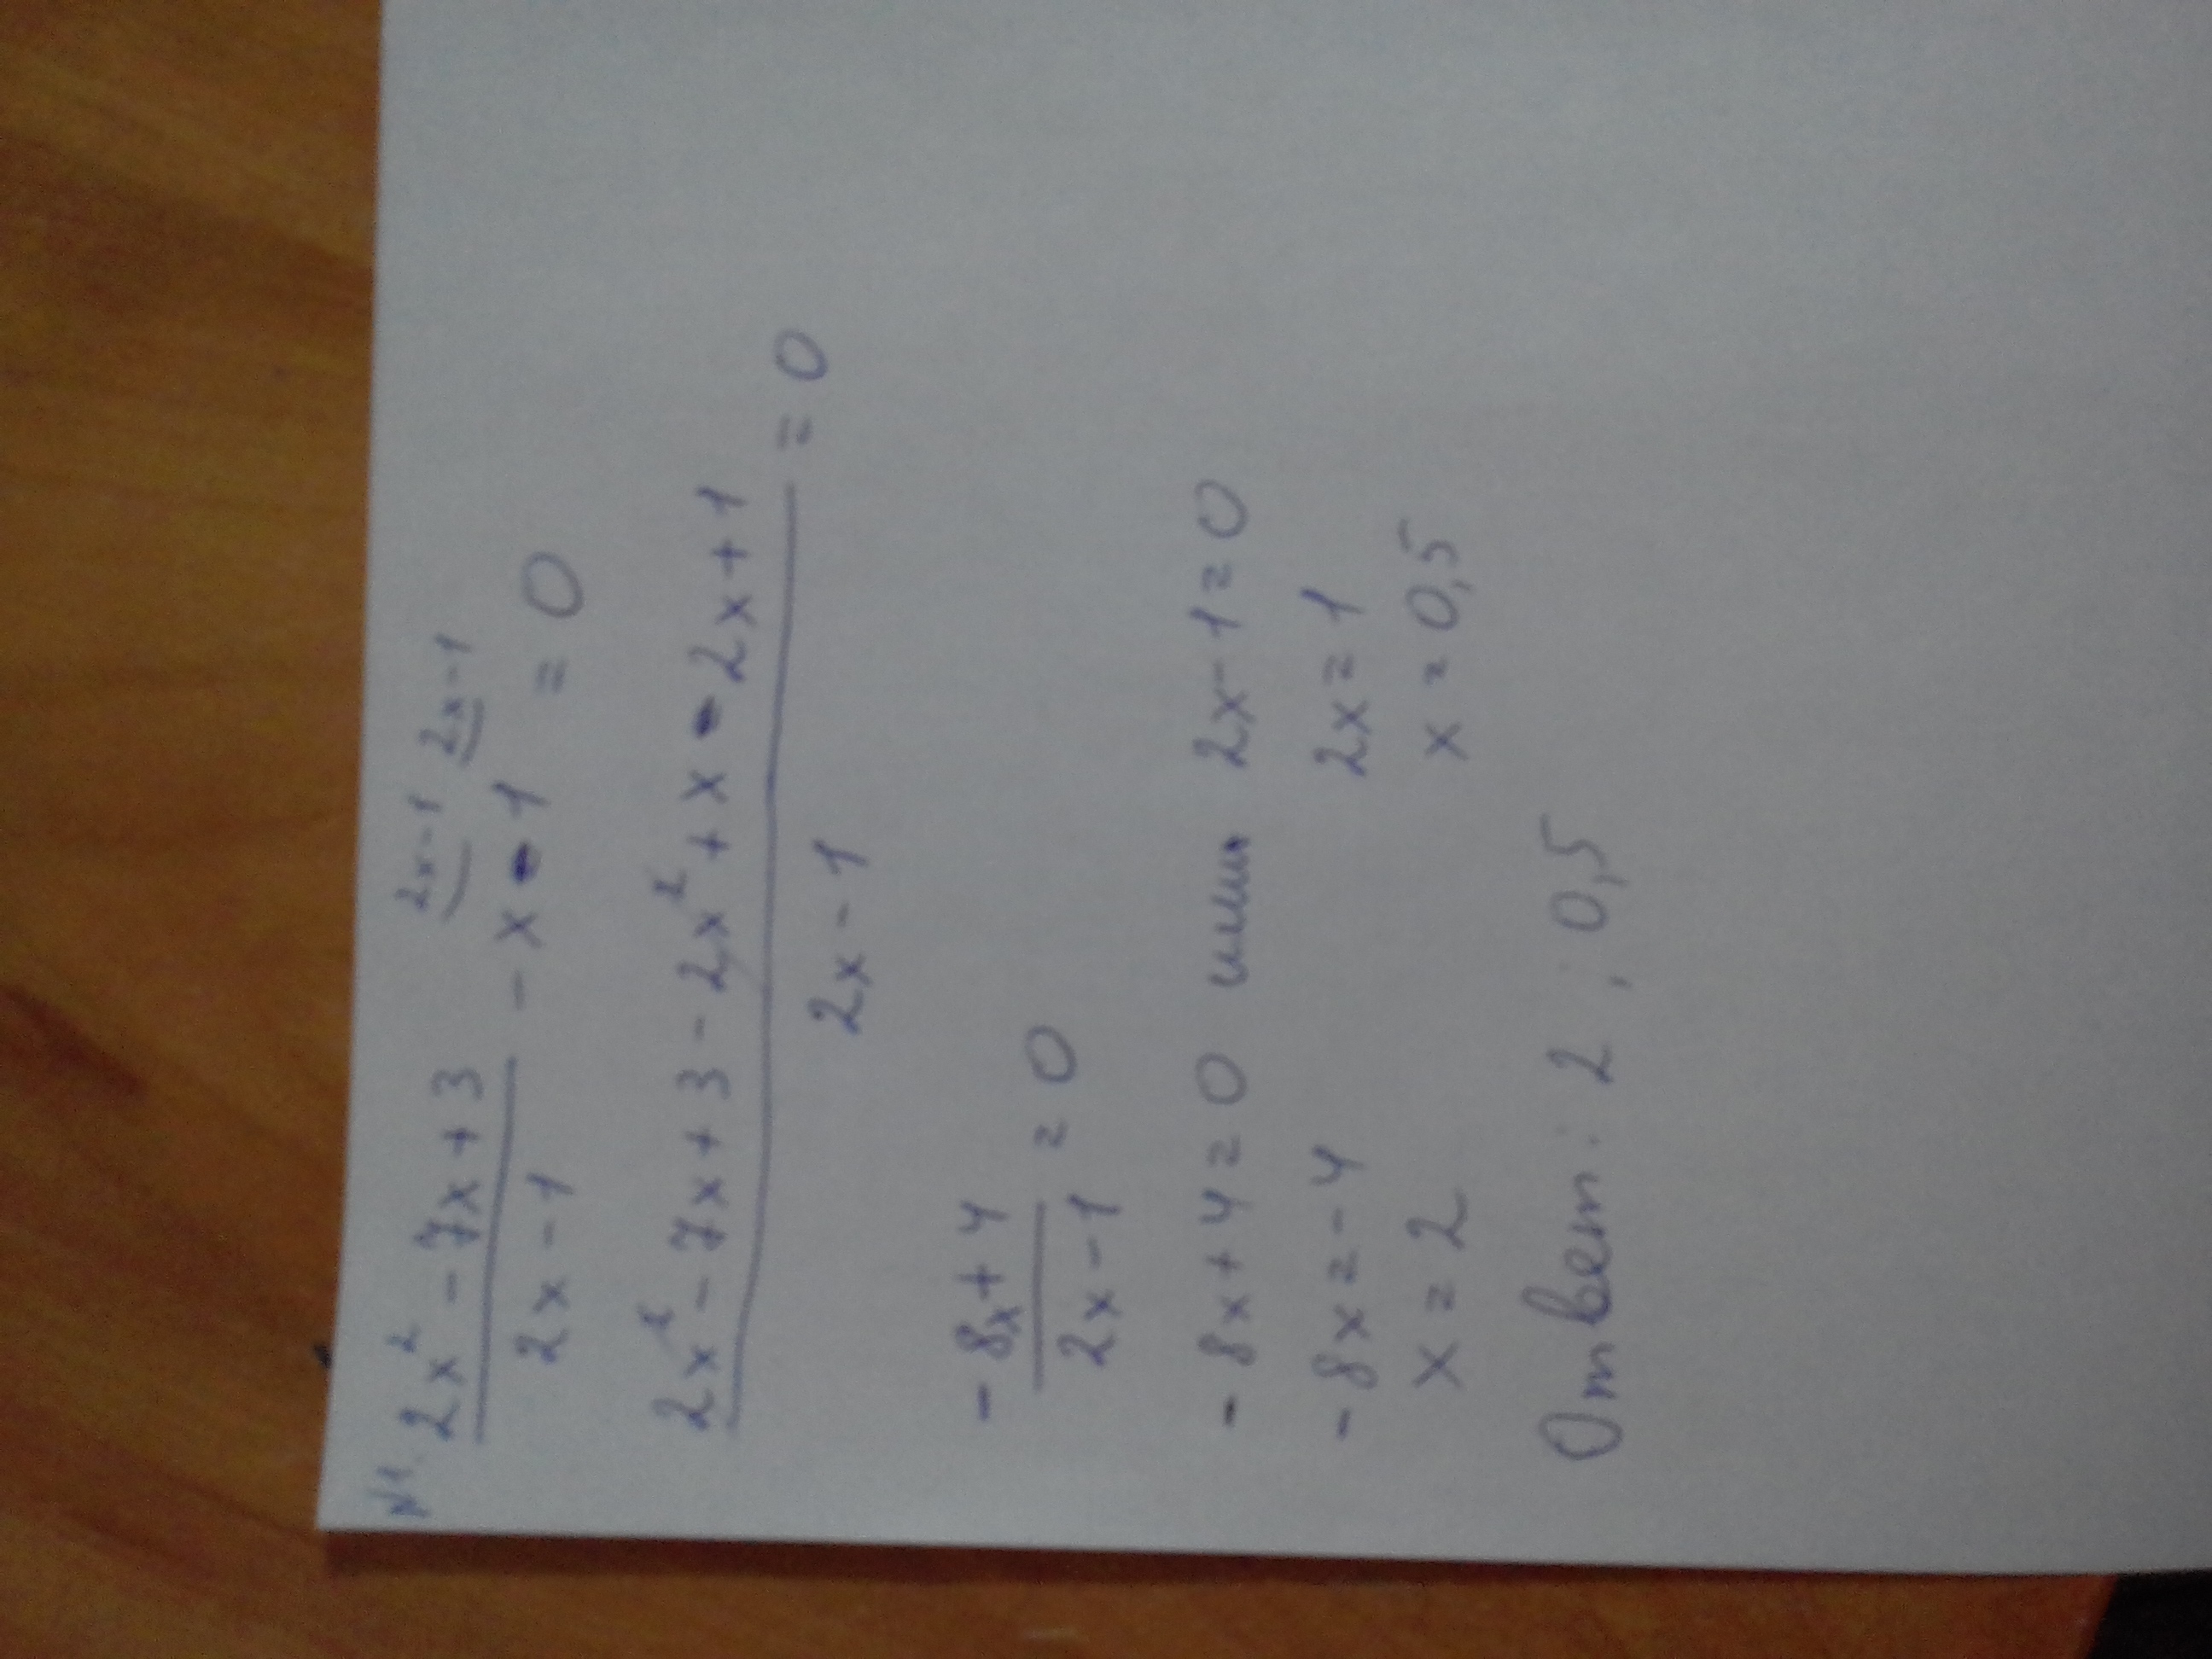 N1.
2x-1 2x-1
2x² - 7x + 3 / 2x - 1 - x - 1 = 0
2x² - 7x + 3 - 2x² + x - 2x + 1 / 2x - 1 = 0
-8x + 4 / 2x - 1 = 0
-8x + 4 = 0 или 2x - 1 = 0
-8x = -4 2x = 1
x = 2 x = 0,5
Ответ: 2 ; 0,5